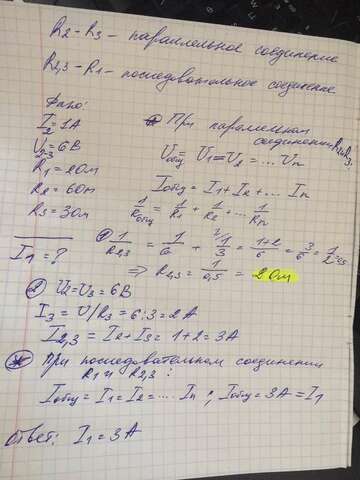 R2 - R3 - параллельное соединение
R2,3 - R1 - последовательное соединение
Дано:
I2 = 1A
U2-3 = 6В
R1 = 2 Ом
R2 = 6 Ом
R3 = 3 Ом
I1 = ?
* При параллельном соединении R2 и R3.
Uобщ = U1 = U2 = ... Un
Iобщ = I1 + I2 + ... In
1/Rобщ = 1/R1 + 1/R2 + ... 1/Rn
① 1/R2,3 = 1/6 + 2/ 1/3 = 1+2/6 = 3/6 = 1/2 = 0,5
⇒ R2,3 = 1/0,5 = 2 Ом
② U2 = U3 = 6 В
I3 = U/R3 = 6:3 = 2 A
I2,3 = I2 + I3 = 1 + 2 = 3 A
* При последовательном соединении
R1 и R2,3 :
Iобщ = I1 = I2 = .... In ; Iобщ = 3 A = I1
Ответ: I1 = 3 A